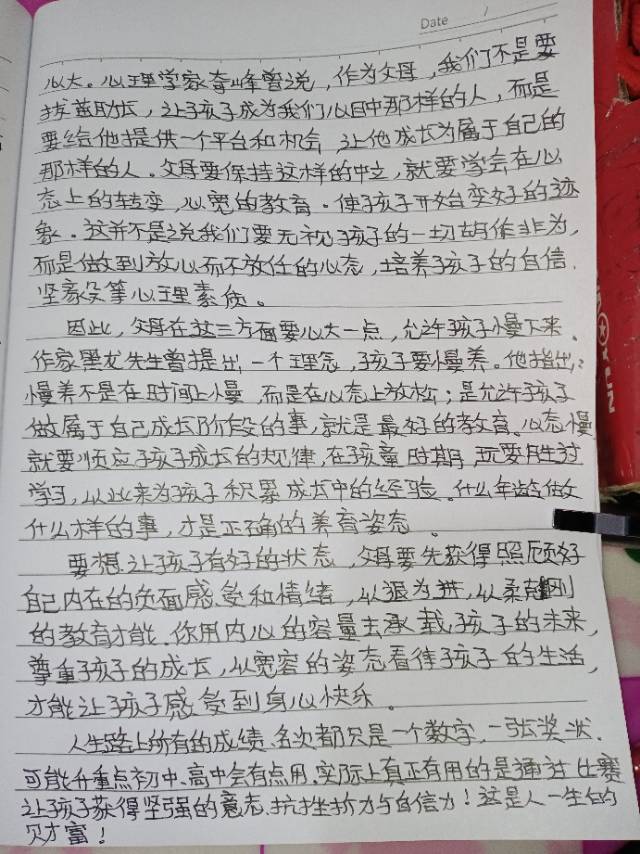 Date /
心大。心理学家奇峰曾说，作为父母，我们不是要
拔苗助长，让孩子成为我们心目中那样的人，而是
要给他提供一个平台和机会，让他成长为属于自己的
那样的人。父母要保持这样的中立，就要学会在心
态上的转变，心宽的教育。使孩子开始变好的迹
象。这并不是说我们要无视孩子的一切胡作非为，
而是做到放心而不放任的心态，培养孩子的自信、
坚毅等心理素质。
因此，父母在这三方面要心大一点，允许孩子慢下来。
作家黑龙先生曾提出，一个理念，孩子要慢养。他指出，：
慢养不是在时间上慢，而是在心态上放松；是允许孩子
做属于自己成长阶段的事，就是最好的教育。心态慢
就要顺应孩子成长的规律，在孩童时期，玩要胜过
学习，以此来为孩子积累成长中的经验。什么年龄做
什么样的事，才是正确的养育姿态。
要想让孩子有好的状态，父母要先获得照顾好
自己内在的负面感受和情绪，以退为进，以柔克刚
的教育才能。你用内心的容量去承载孩子的未来，
尊重孩子的成长，以宽容的姿态看待孩子的生活，
才能让孩子感受到身心快乐。
人生路上所有的成绩、名次都只是一个数字，一张奖状.
可能升重点初中、高中会有点用.实际上真正有用的是通过比赛
让孩子获得坚强的意志.抗挫折力与自信力！这是人一生的
财富！